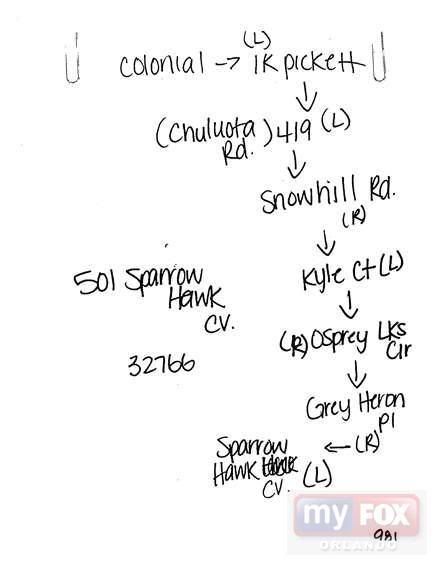 (L)
colonial → 1K pickett
(Chuluota 419 (L)
Rd.)
Snowhill Rd.
(R)
Kyle Ct (L)
501 Sparrow
Hawk
CV.
32766
(R) Osprey Lks
Cir
Grey Heron
Pl
Sparrow ← (R)
Hawk
CV. (L)
my FOX
ORLANDO
981